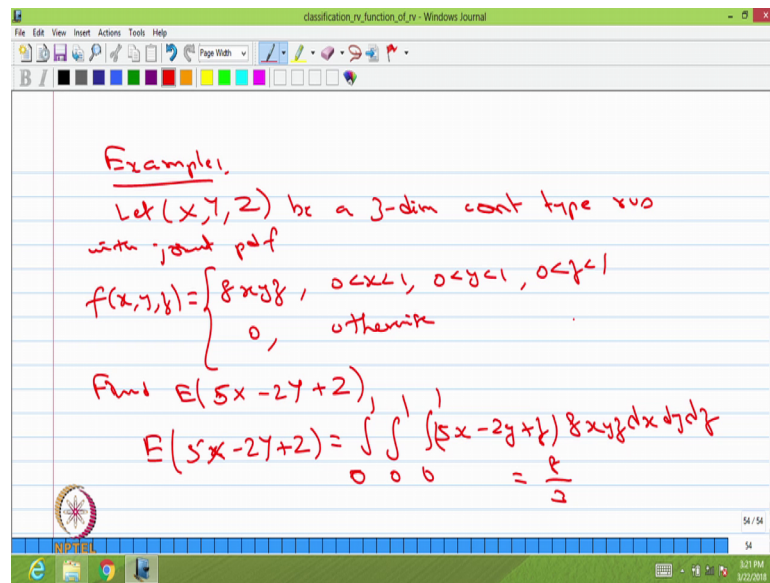 classification_rv_function_of_rv - Windows Journal
File Edit View Insert Actions Tools Help
Page Width
B I
Example1.
Let (X,Y,Z) be a 3-dim cont type rvs
with joint pdf
f(x,y,z) = { 8xyz, 0<x<1, 0<y<1, 0<z<1
0, otherwise
Find E(5X-2Y+Z),
E(5X-2Y+Z) = ∫₀¹ ∫₀¹ ∫₀¹ (5x-2y+z) 8xyz dx dy dz
= 8/3
54 / 54
54
NPTEL
3:21 PM
3/22/2018